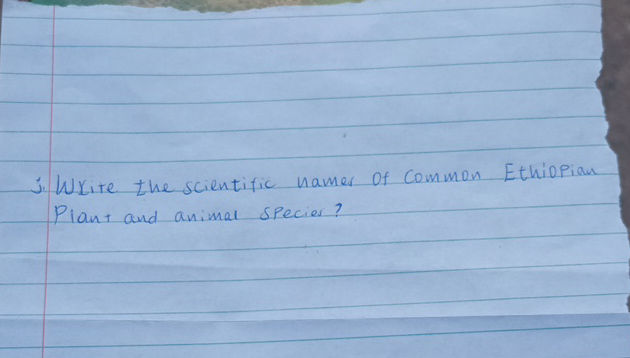 j. Write the scientific names of common Ethiopian
Plant and animal species?